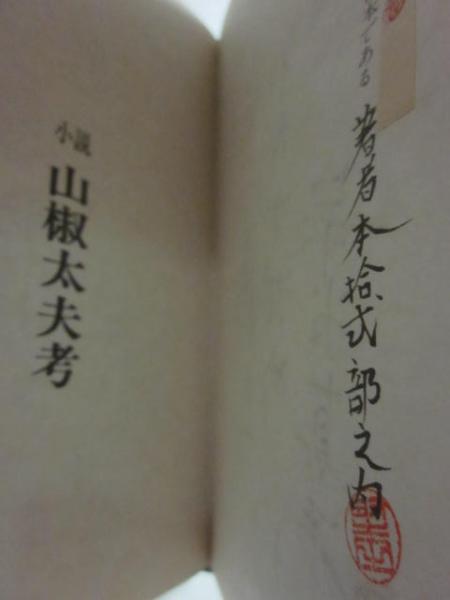 本である
著者本拾弐部之内
小説
山椒太夫考